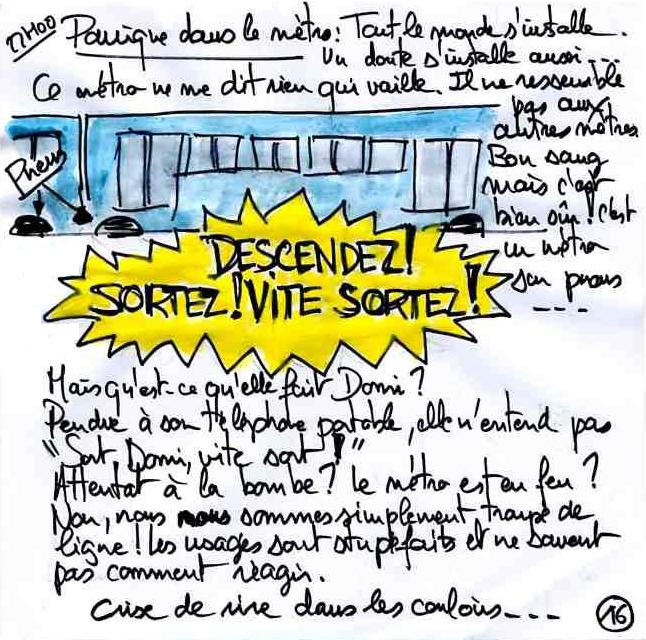 17H00 Panique dans le métro : Tout le monde s'installe.
Un doute s'installe aussi...
Ce métro ne me dit rien qui vaille. Il ne ressemble
pas aux
autres métros
Bon sang
mais c'est
bien sûr ! C'est
un métro
sur pneus
----
Pneus
DESCENDEZ!
SORTEZ! VITE SORTEZ!
Mais qu'est-ce qu'elle fait Domi ?
Pendue à son téléphone portable, elle n'entend pas
"Sort Domi, vite sort !"
Attentat à la bombe ? Le métro est en feu ?
Non, nous sommes simplement trompé de
ligne ! Les usagés sont stupéfaits et ne savent
pas comment réagir.
Crise de rire dans les couloirs----
16